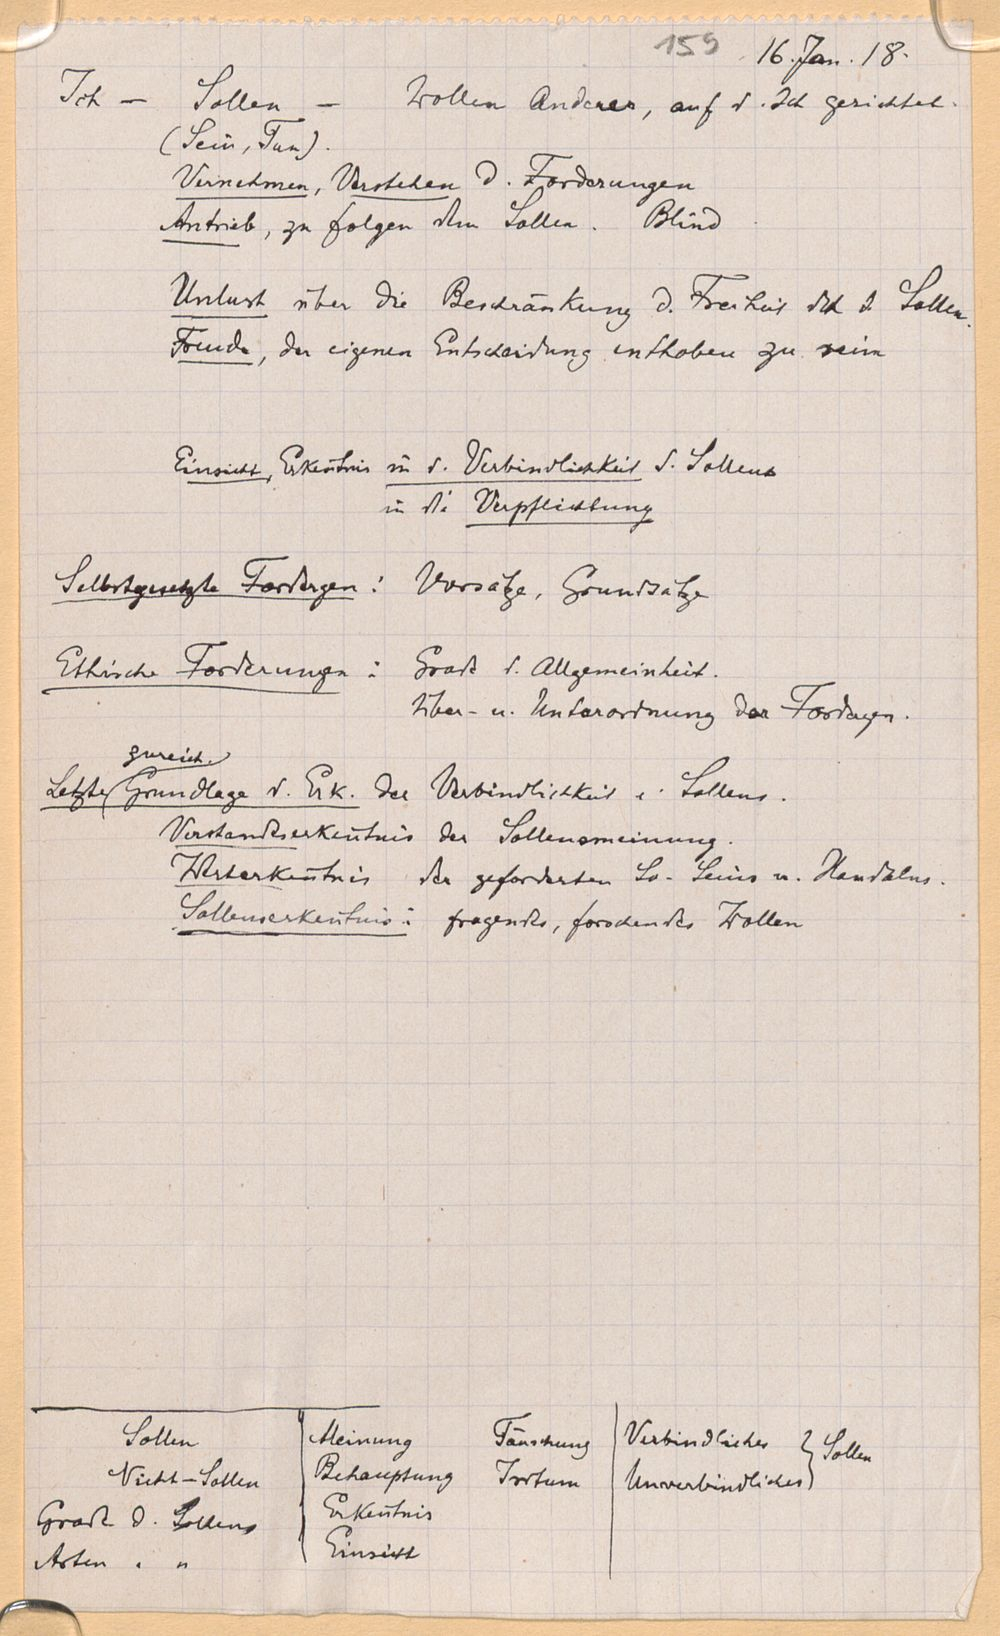 159
16. Jan. 18.
Ich — Sollen — Wollen Anderer, auf d. Ich gerichtet.
(Sein, Tun).
Vernehmen, Verstehen d. Forderungen
Antrieb, zu folgen dem Sollen. Blind
Unlust über die Beschränkung d. Freiheit dch d. Sollen.
Freude, der eigenen Entscheidung enthoben zu sein
Einsicht, Erkeñtnis in d. Verbindlichkeit d. Sollens
in die Verpflichtung
Selbstgesetzte Fordergen: Vorsätze, Grundsätze
Ethische Forderungen: Grade d. Allgemeinheit.
Über- u. Unterordnung der Fordergen.
zureich.
Letzte Grundlage d. Erk. der Verbindlichkeit e. Sollens.
Verstandeserkeñtnis der Sollensmeinung.
Werterkeñtnis des geforderten So-Seins u. Handelns.
Sollenserkeñtnis: fragendes, forschendes Wollen
Sollen Meinung Täuschung Verbindliches } Sollen
Nicht-Sollen Behauptung Irrtum Unverbindliches
Grade d. Sollens Erkeñtnis
Arten " " Einsicht